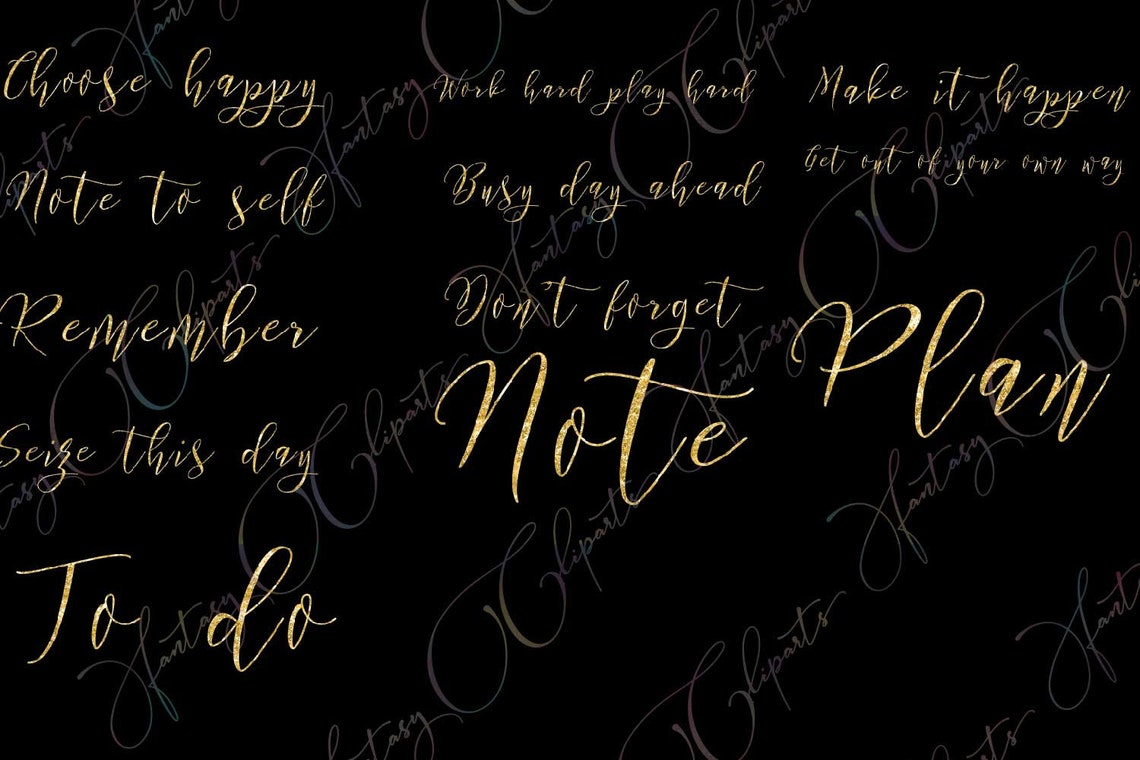 Choose happy
Note to self
Remember
Seize this day
To do
Work hard play hard
Busy day ahead
Don't forget
Note
Make it happen
Get out of your own way
Plan
Fantasy Cliparts